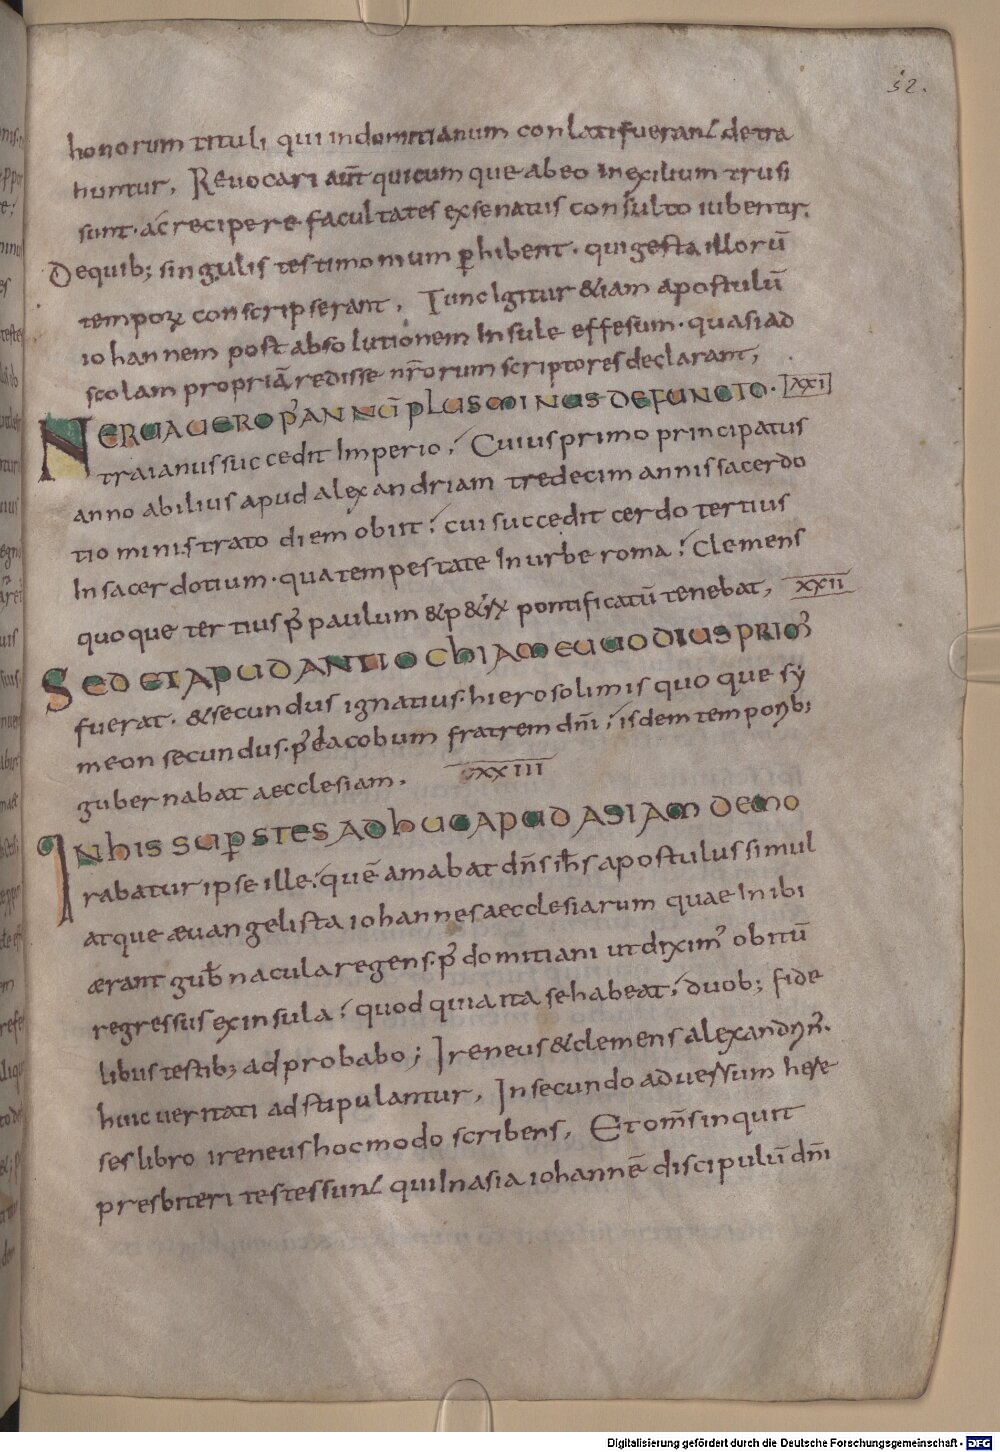 52.
honorum tituli qui indomitianum conlati fuerant detra
huntur, Reuocari aut̄ quicumque abeo inexilium trusi
sunt. ac recipere facultates exsenatus consulto iubentur.
Dequib; singulis testimonium ꝑhibent. qui gesta illorū
temporꝝ conscripserant, Tunc Igitur &iam apostulū
iohannem post absolutionem Insule effesum. quasi ad
scolam propriā redisse nr̄orum scriptores declarant,
NERUA UERO P' ANNŪ PLUS MINUS DEFUNCTO. XXI
traianus succedit Imperio; Cuius primo principatus
anno abilius apud alexandriam tredecim annis sacerdo
tio ministrato diem obiit; cui succedit cerdo tertius
In sacerdotium. qua tempestate In urbe roma; Clemens
quoque tertius p' paulum & p&rꝝ pontificatū tenebat, XXII
SED ET APUD ANTIOCHIAM EUUODIUS PRIM'
fuerat. & secundus ignatius. hierosolimis quoque sy
meon secundus. p' Iacobum fratrem dn̄i; isdem temporib;
gubernabat aecclesiam. XXIII
IN HIS SUPERSTES ADHUC APUD ASIAM DEMO
rabatur ipse ille; quē amabat dn̄s ih̄s apostulus simul
atque æuangelista iohannes aecclesiarum quae In ibi
ærant gub̄nacula regens. p' domitiani ut dixim' obitū
regressus exinsula; quod quia ita se habeat; duob; fide
libus testib; adprobabo; Ireneus & clemens alexandrin'.
huic ueritati adstipulantur, In secundo aduersum here
ses libro ireneus hoc modo scribens, Et om̄s inquit
presbiteri testes sunt qui In asia iohannē discipulū dn̄i
Digitalisierung gefördert durch die Deutsche Forschungsgemeinschaft - DFG